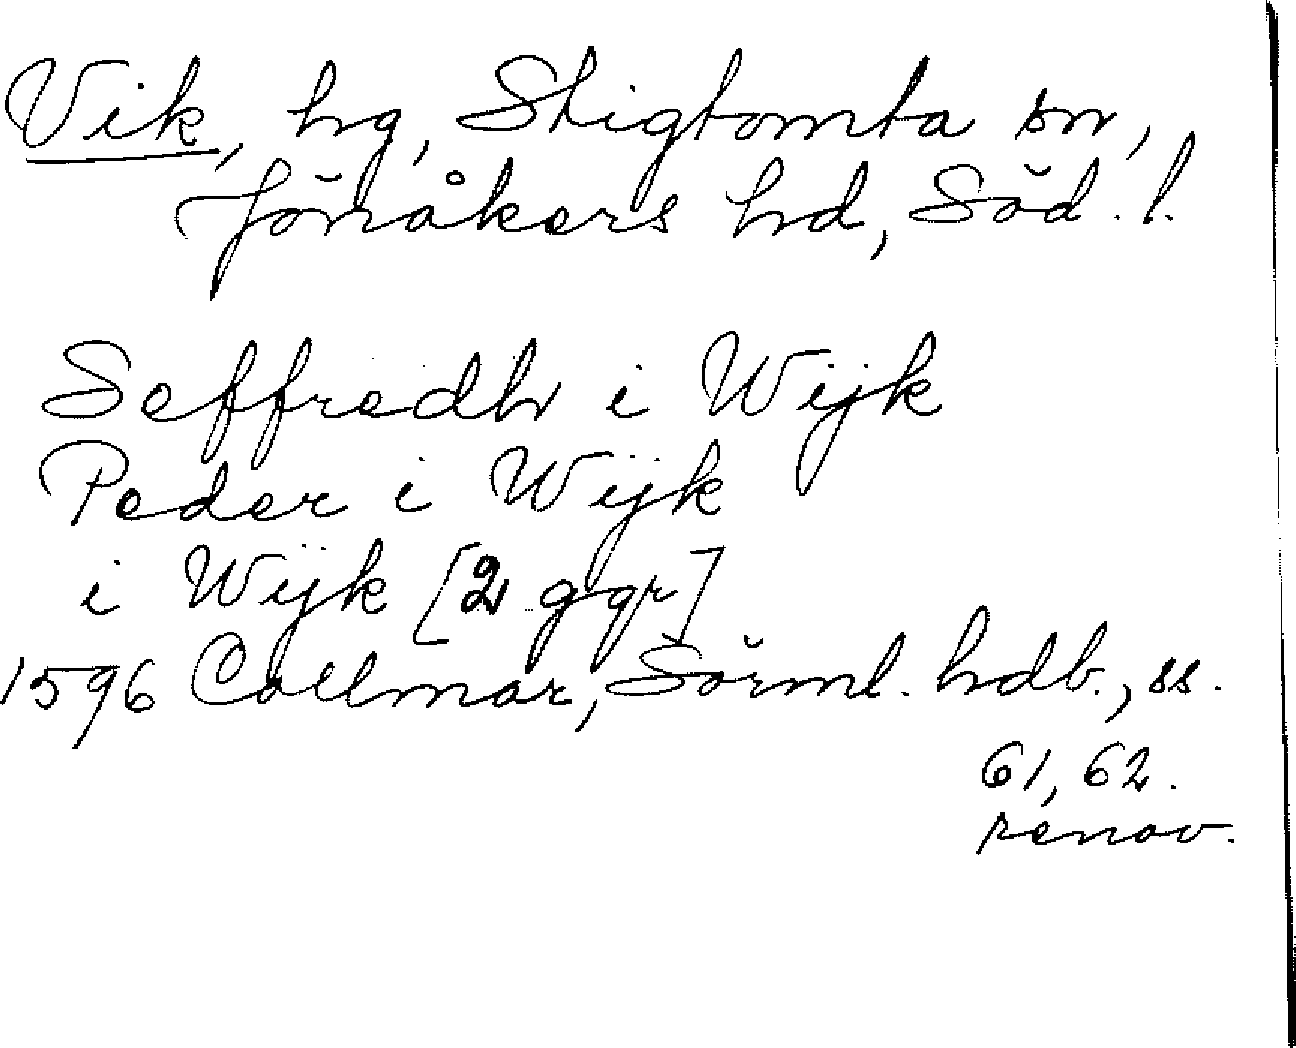 Vik, hg, Stigtomta sn,
Jönåkers hd, Söd. l.
Seffredh i Wijk
Peder i Wijk
i Wijk [2 ggr]
1596 Collmar, Sörml. hdb., ss.
61, 62.
renov.